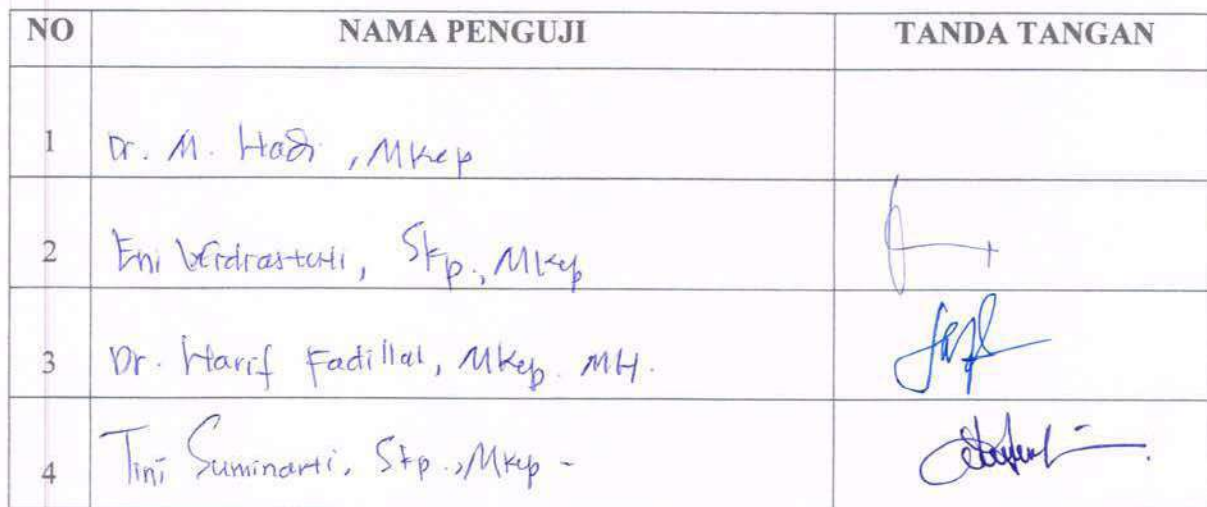 NO NAMA PENGUJI TANDA TANGAN
1 Dr. M. Hadi, MKep
2 Eni Widiastuti, Skp., MKep
3 Dr. Harif Fadillah, MKep. MH.
4 Tini Suminarti, Skp., MKep -